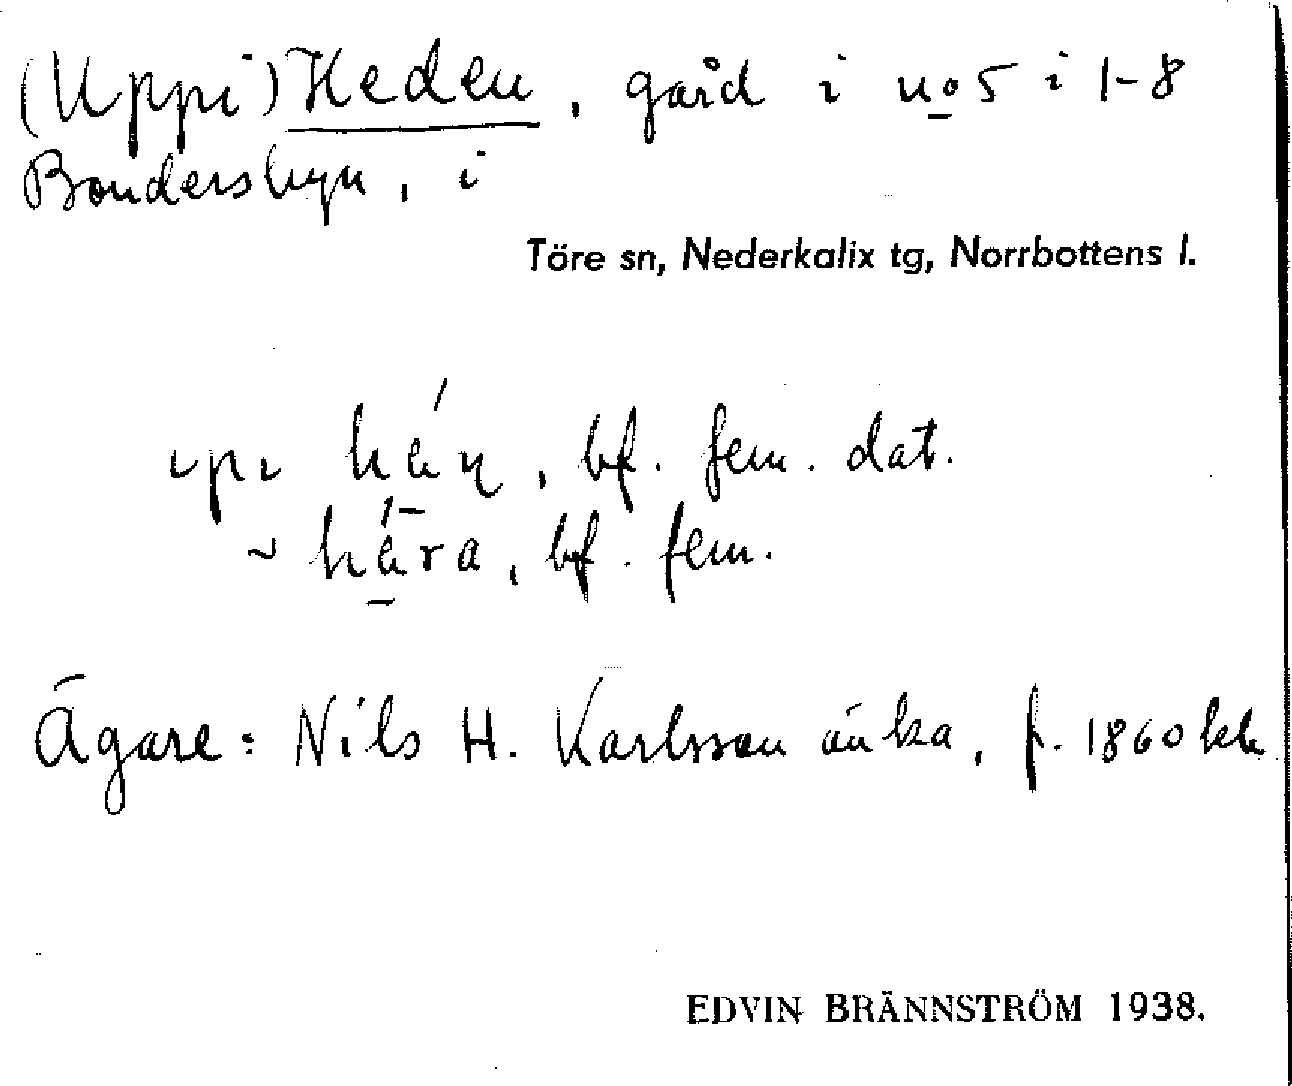 (Uppi) Heden, gård i no 5 i 1-8
Bondersbyn, i
Töre sn, Nederkalix tg, Norrbottens l.
bf. fem. dat.
bf. fem.
Ägare: Nils H. Karlsson änka, f. 1860 kk
EDVIN BRÄNNSTRÖM 1938.